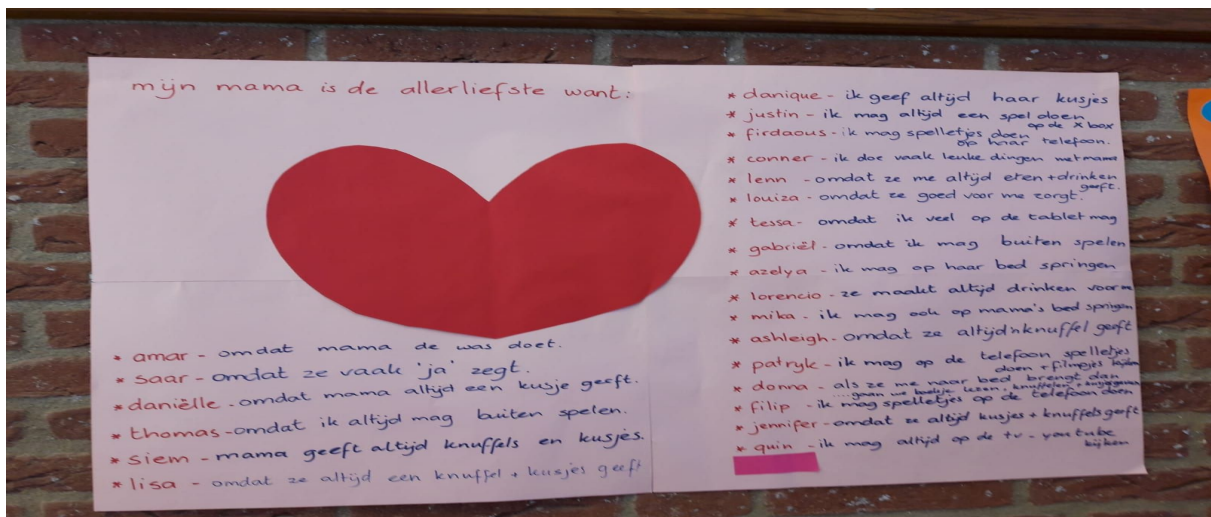 mijn mama is de allerliefste want:
* amar - omdat mama de was doet.
* saar - omdat ze vaak 'ja' zegt.
* daniëlle - omdat mama altijd een kusje geeft.
* thomas - omdat ik altijd mag buiten spelen.
* siem - mama geeft altijd knuffels en kusjes.
* lisa - omdat ze altijd een knuffel + kusjes geeft
* danique - ik geef altijd haar kusjes
* justin - ik mag altijd een spel doen
op de x box
* firdaous - ik mag spelletjes doen
op haar telefoon.
* conner - ik doe vaak leuke dingen met mama
* lenn - omdat ze me altijd eten + drinken
geeft.
* louiza - omdat ze goed voor me zorgt.
* tessa - omdat ik veel op de tablet mag
* gabriël - omdat ik mag buiten spelen
* azelya - ik mag op haar bed springen
* lorencio - ze maakt altijd drinken voor me
* mika - ik mag ook op mama's bed springen
* ashleigh - omdat ze altijd 'n knuffel geeft
* patryk - ik mag op de telefoon spelletjes
doen + filmpjes kijken
* donna - als ze me naar bed brengt dan
....gaan we boekje lezen, knuffelen +
* filip - ik mag spelletjes op de telefoon doen
* jennifer - omdat ze altijd kusjes + knuffels geeft
* quin - ik mag altijd op de tv - youtube
kijken